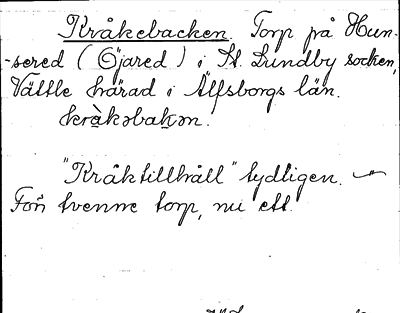 Kråkebacken. Torp på Hun-
-sered (Öjared) i St. Lundby socken,
Vättle härad i Älfsborgs län.
kràkəbakən.
"Kråktillhåll" tydligen. —
Förr tvenne torp, nu ett.